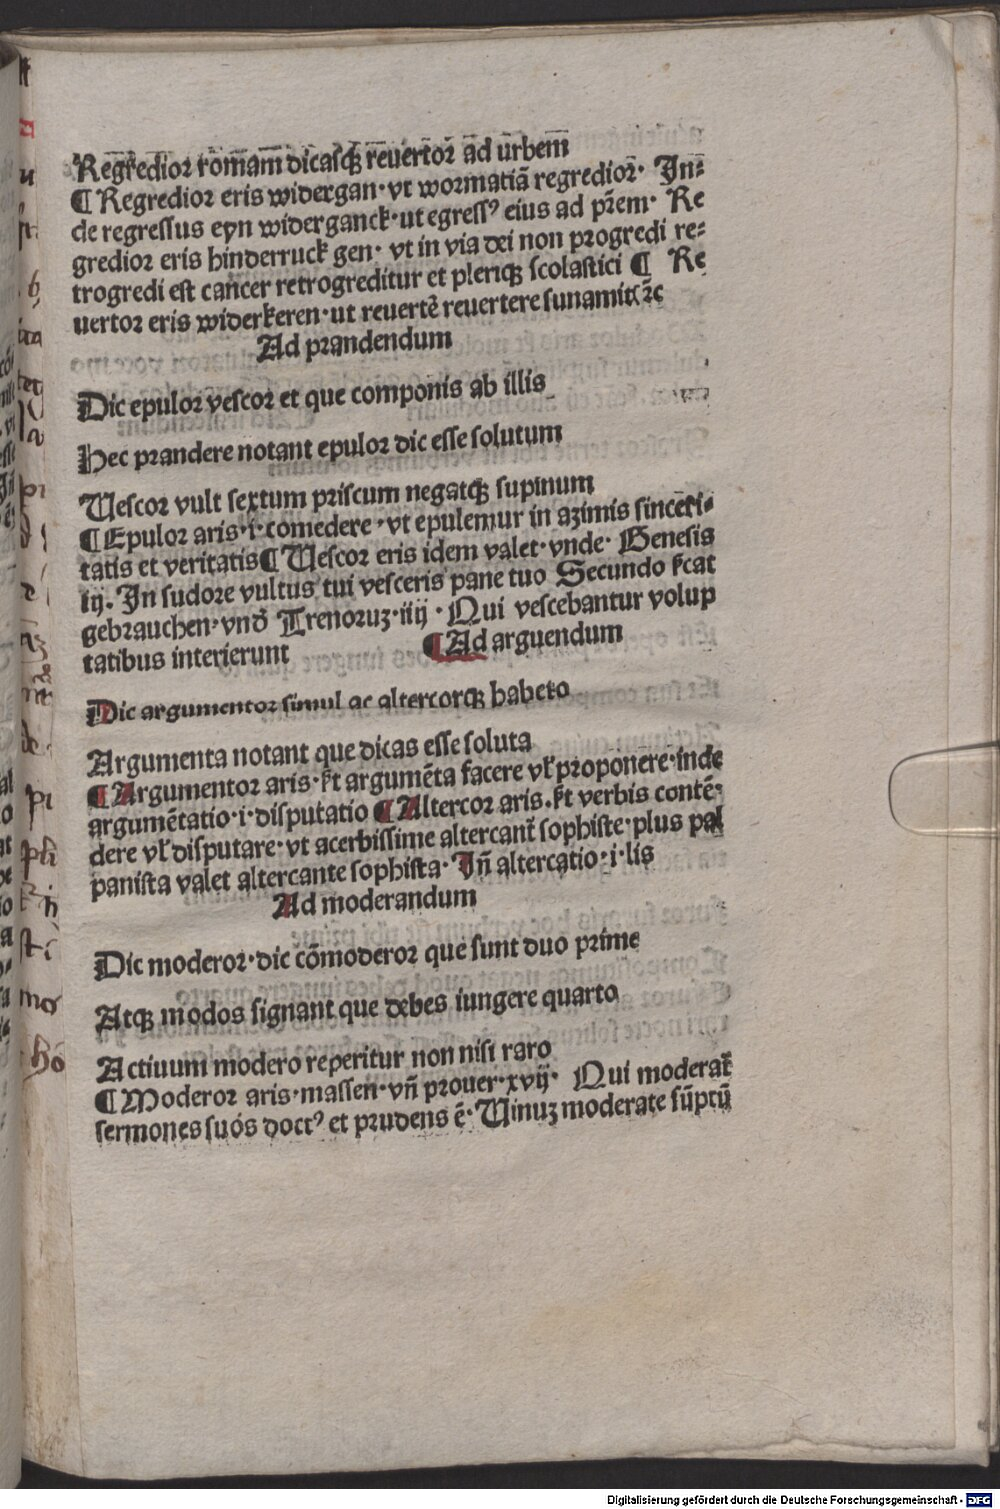 Regredior romam dicasqꝫ reuertor ad urbem
¶ Regredior eris widergan· vt wormatiā regredior· In⸗
de regressus eyn widerganck· ut egressꝰ eius ad pr̄em· Re
gredior eris hinderruck gen· vt in via dei non progredi re⸗
trogredi est cancer retrogreditur et pleriqꝫ scolastici ¶ Re
uertor eris widerkeren· ut reuertē reuertere sunamit̄ ꝛc
Ad prandendum
Dic epulor vescor et que componis ab illis
Hec prandere notant epulor dic esse solutum
Uescor vult sextum priscum negatqꝫ supinum
¶ Epulor aris·i·comedere· vt epulemur in azimis sinceri⸗
tatis et veritatis ¶ Uescor eris idem valet· vnde· Genesis
iij. In sudore vultus tui vesceris pane tuo Secundo s̄cat
gebrauchen· vnd̄ Trenoruꝫ·iiij· Qui vescebantur volup
tatibus interierunt ¶ Ad arguendum
Dic argumentor simul ac altercorqꝫ habeto
Argumenta notant que dicas esse soluta
¶ Argumentor aris· s̄t argumēta facere vl̄ proponere· inde
argumētatio·i·disputatio ¶ Altercor aris. s̄t verbis contē⸗
dere vl̄ disputare· vt acerbissime altercant̄ sophiste· plus pal
panista valet altercante sophista· Iñ altercatio·i·lis
Ad moderandum
Dic moderor· dic cōmoderor que sunt duo prime
Atqꝫ modos signant que debes iungere quarto
Actiuum modero reperitur non nisi raro
¶ Moderor aris· massen· vñ prouer· xvij· Qui moderat̄
sermones suos doctꝰ et prudens ē· Uinuꝫ moderate sūptū
Digitalisierung gefördert durch die Deutsche Forschungsgemeinschaft - DFG